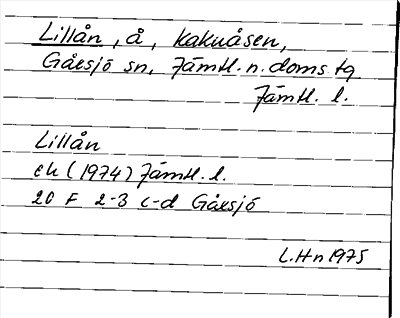 Lillån, å, Kakuåsen,
Gåxsjö sn, Jämtl. n. doms. tg
Jämtl. l.
Lillån
ek (1974) Jämtl. l.
20 F 2-3 c-d Gåxsjö
L. Hn 1975